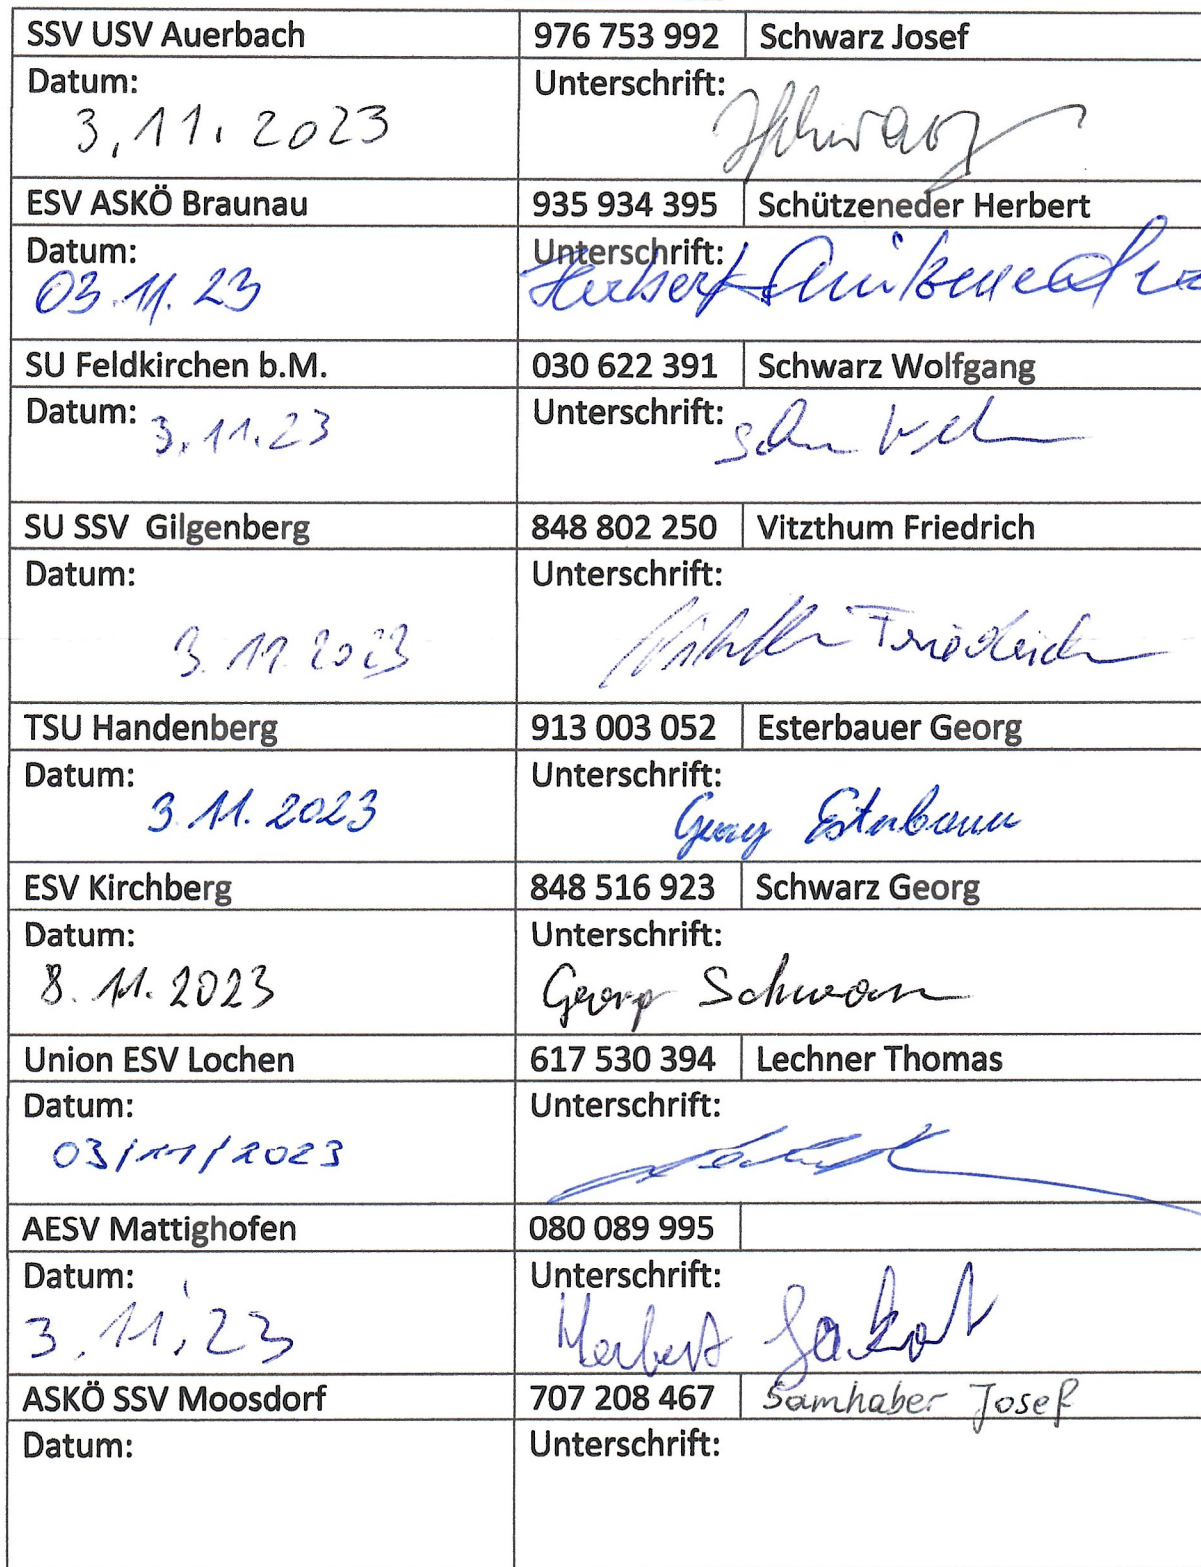 SSV USV Auerbach 976 753 992 Schwarz Josef
Datum: Unterschrift:
3.11.2023 Schwarz
ESV ASKÖ Braunau 935 934 395 Schützeneder Herbert
Datum: Unterschrift:
03.11.23 Herbert
SU Feldkirchen b.M. 030 622 391 Schwarz Wolfgang
Datum: 3.11.23 Unterschrift:
SU SSV Gilgenberg 848 802 250 Vitzthum Friedrich
Datum: Unterschrift:
3.11.2023 Friedrich
TSU Handenberg 913 003 052 Esterbauer Georg
Datum: Unterschrift:
3.11.2023 Georg Esterbauer
ESV Kirchberg 848 516 923 Schwarz Georg
Datum: Unterschrift:
8.11.2023 Georg Schwarz
Union ESV Lochen 617 530 394 Lechner Thomas
Datum: Unterschrift:
03/11/2023
AESV Mattighofen 080 089 995
Datum: Unterschrift:
3.11.23 Herbert
ASKÖ SSV Moosdorf 707 208 467 Samhaber Josef
Datum: Unterschrift: